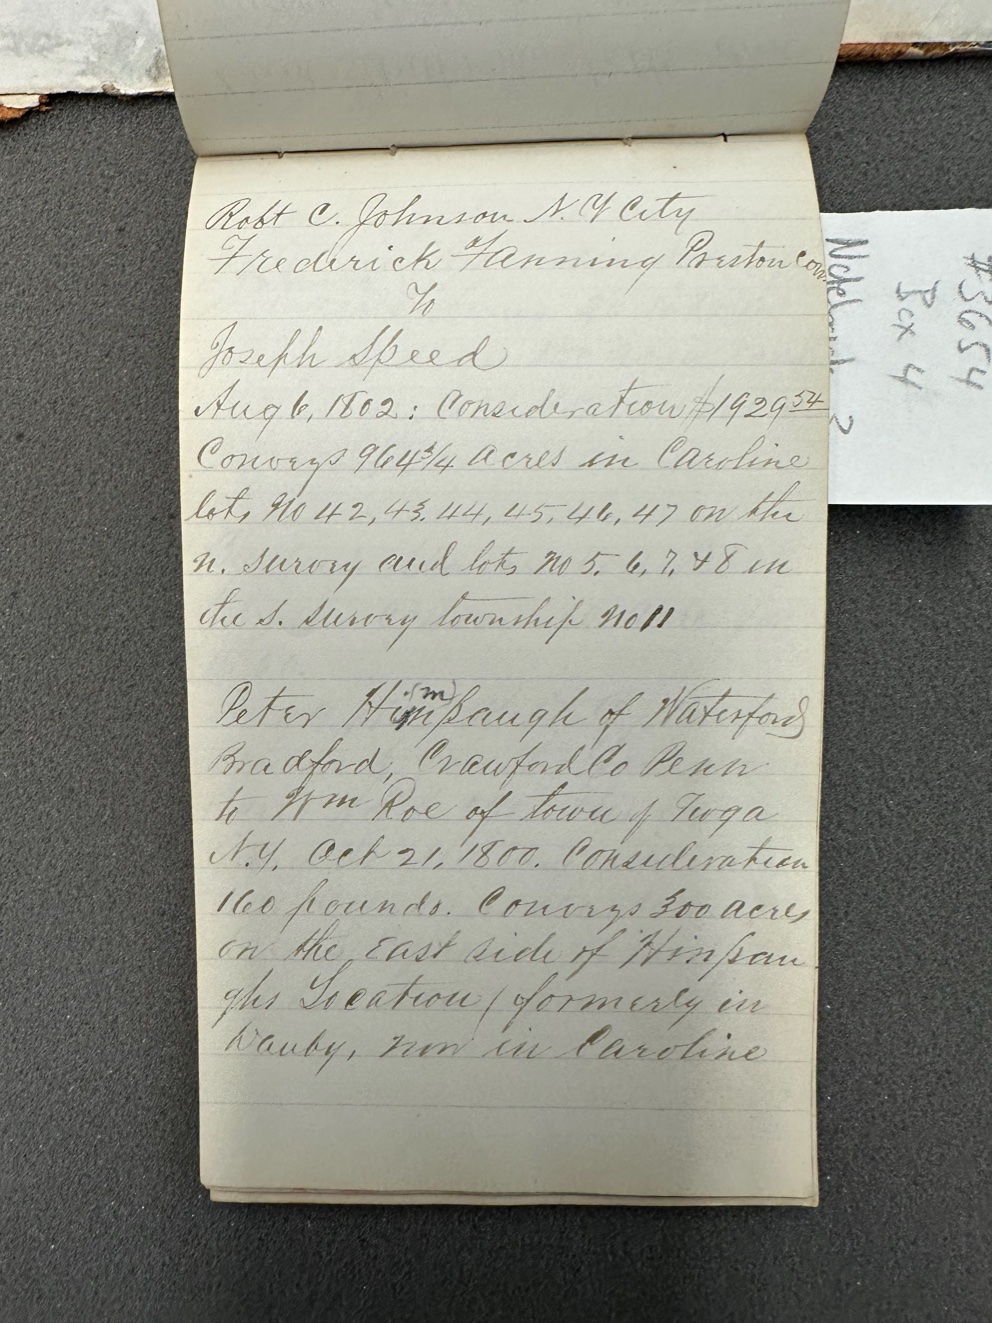 Robt C. Johnson N. Y City
Frederick Fanning Preston Con.
To
Joseph Speed
Aug 6, 1802: Consideration $1929 54
Conveys 964 3/4 acres in Caroline
lots No 42, 43, 44, 45, 46, 47 on the
n. survey and lots no 5, 6, 7, & 8 in
the s. survey township no 11
Peter Hin(m)paugh of Waterford
Bradford, Crawford Co Penn
to Wm Roe of town of Tioga
N.Y. Oct 21, 1800. Consideration
160 pounds. Conveys 300 acres
on the East side of Hinpau
ghs Location (formerly in
Danby, now in Caroline
#3654
Box 4